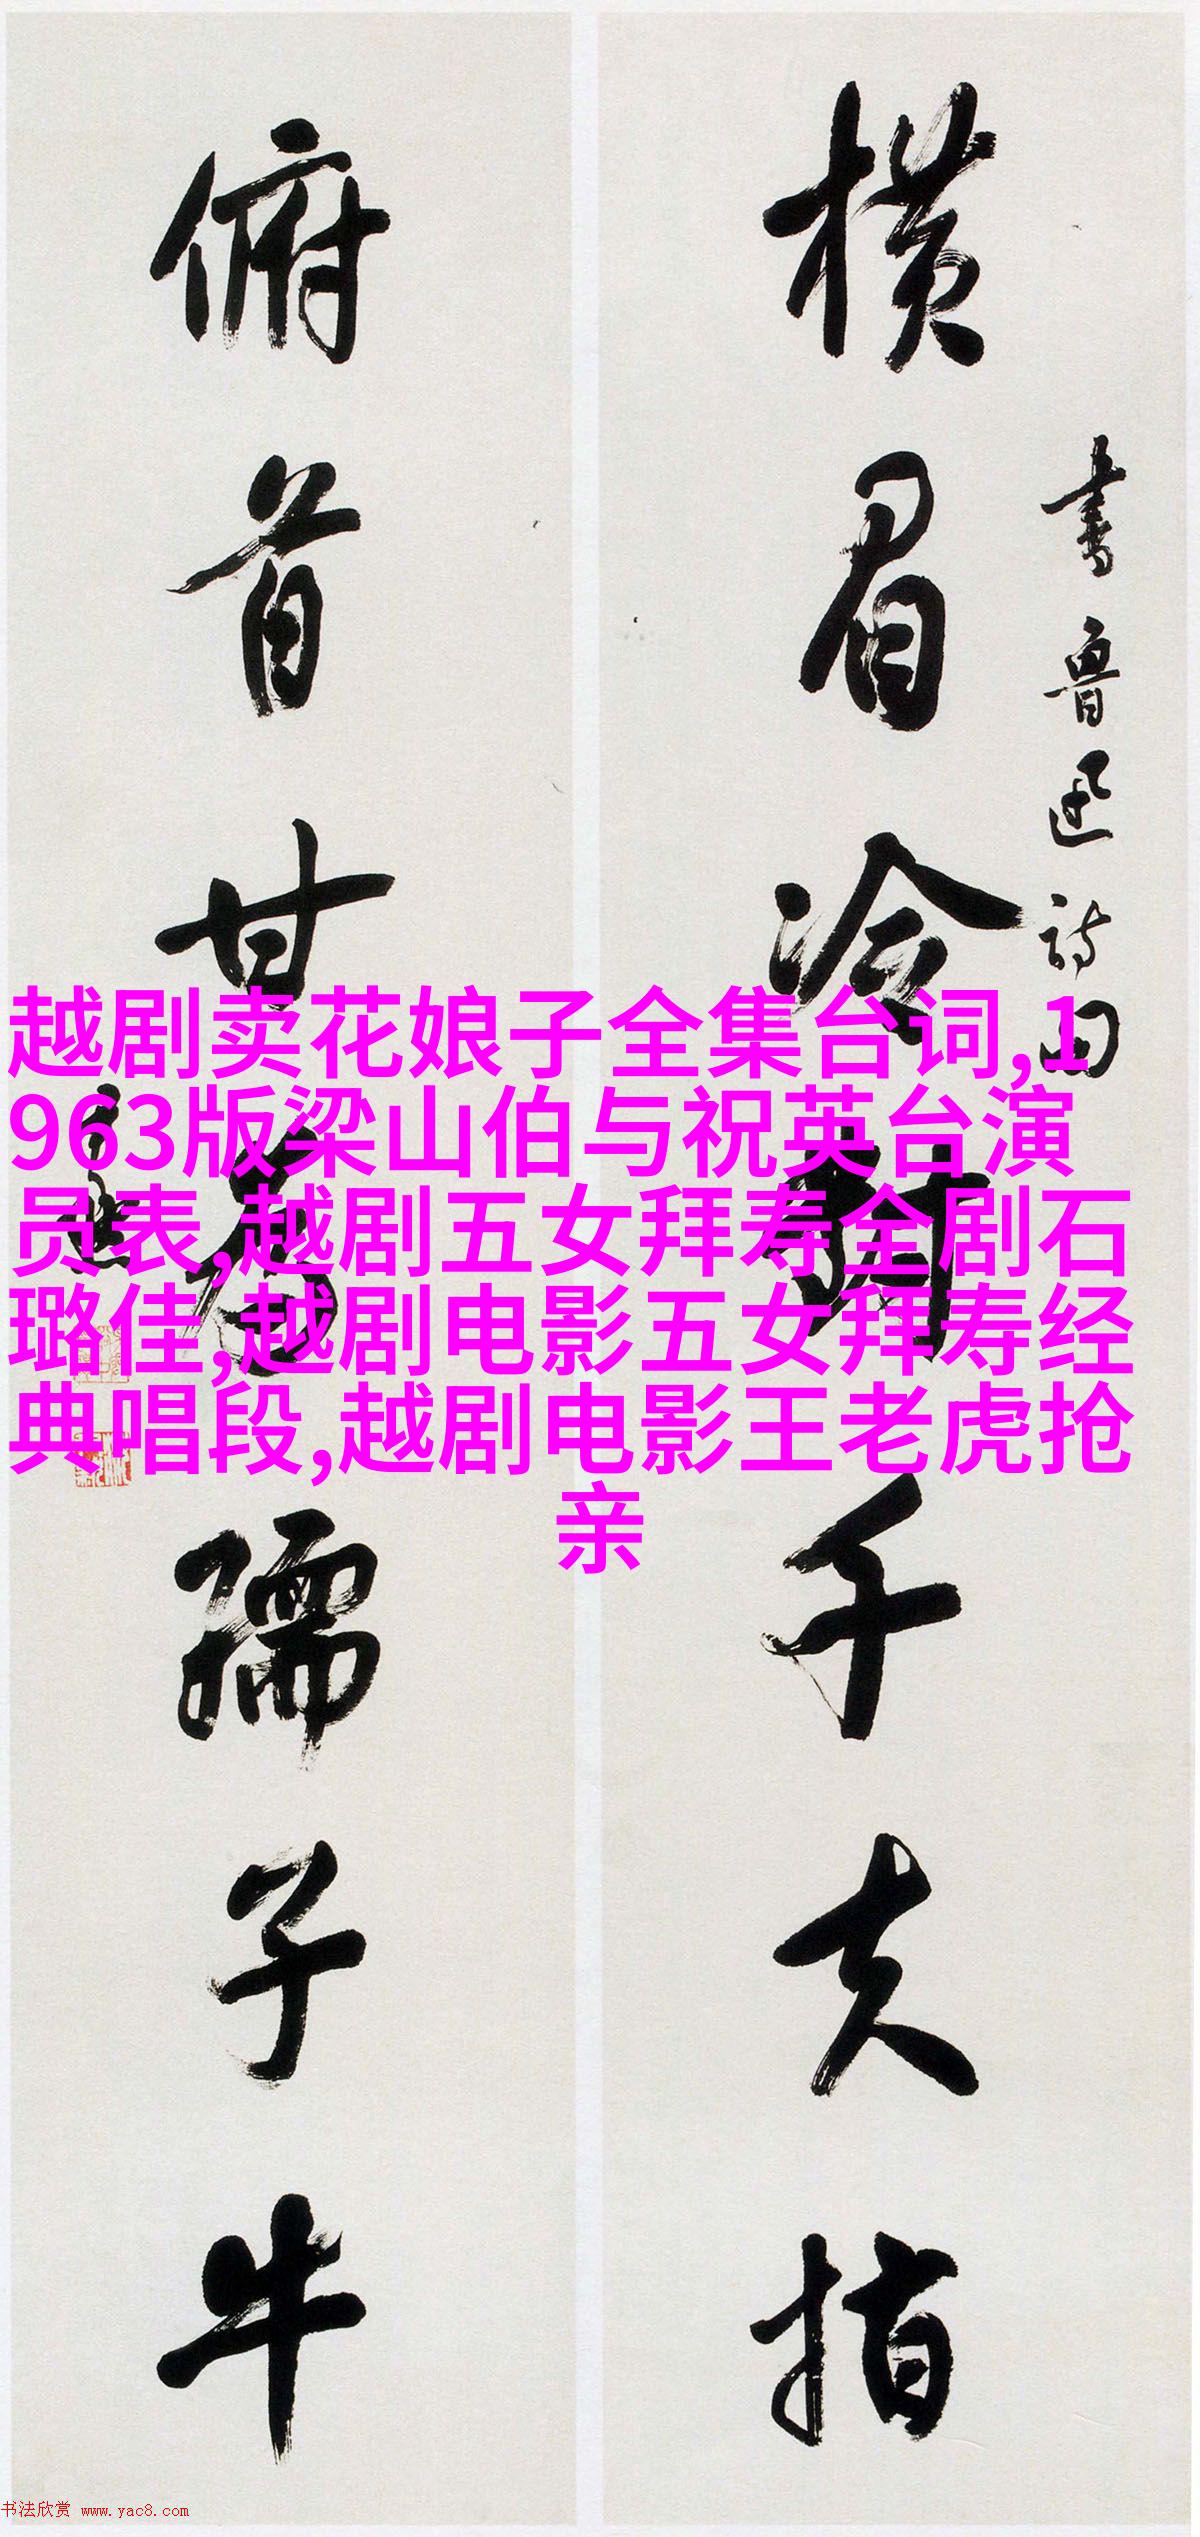 横眉冷對千夫指
書魯迅詩句
俯首甘為孺子牛
越剧卖花娘子全集台词,1
963版梁山伯与祝英台演
员表,越剧五女拜寿全剧石
璐佳,越剧电影五女拜寿经
典唱段,越剧电影王老虎抢
亲
书法欣赏 www.yac8.com